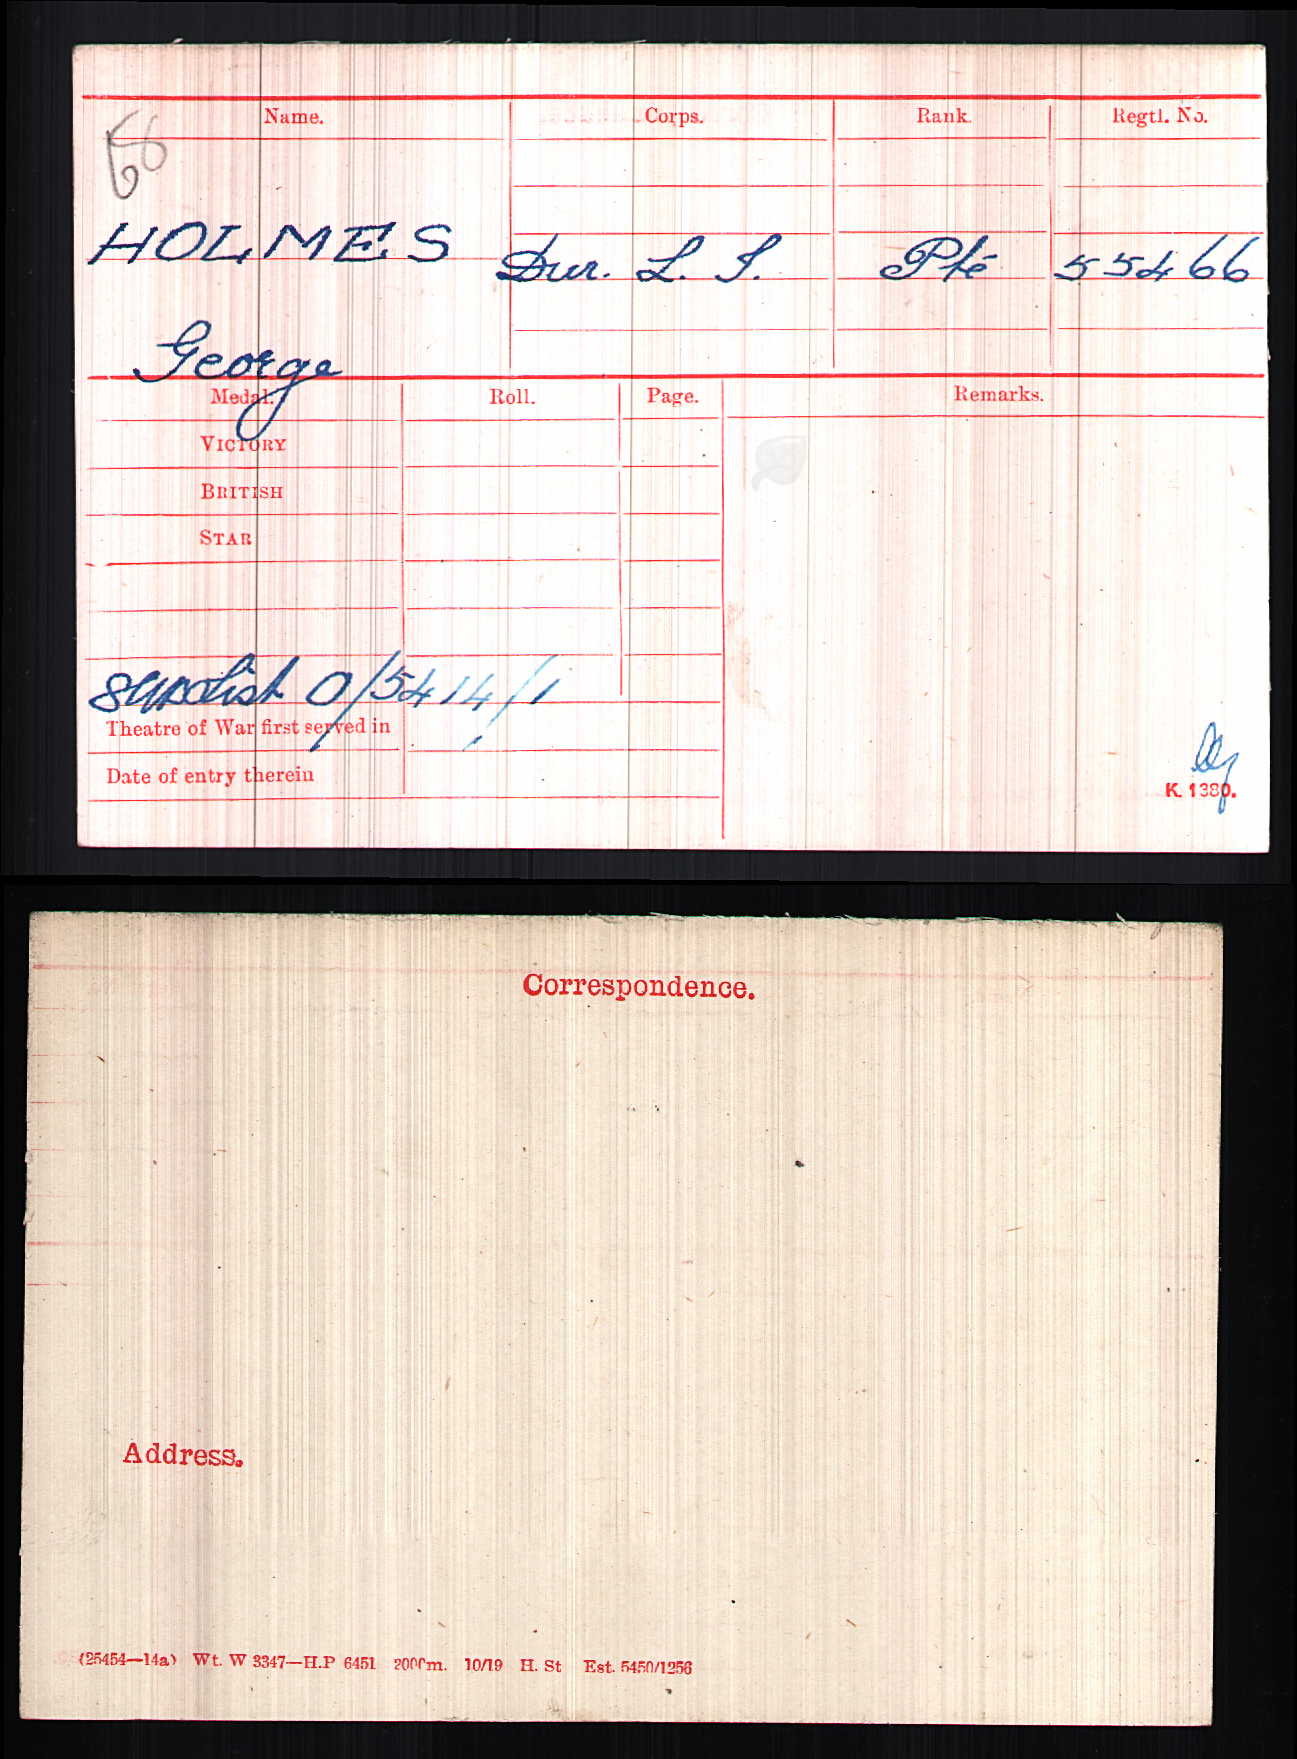 Name. Corps. Rank. Regtl. No.
68
HOLMES Dur. L. I. Pte 55466
George
Medal. Roll. Page. Remarks.
VICTORY
BRITISH
STAR
0/5414/1
Theatre of War first served in
Date of entry therein
K. 1380.
Correspondence.
Address.
(25454—14a) Wt. W 3347—H.P 6451 2000m. 10/19 H. St Est. 5450/1256